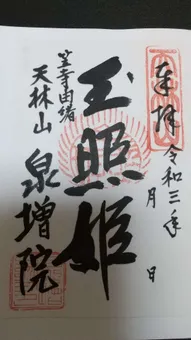 奉拝
令和三年 月 日
玉照姫
笠寺由緒
天林山 泉増院